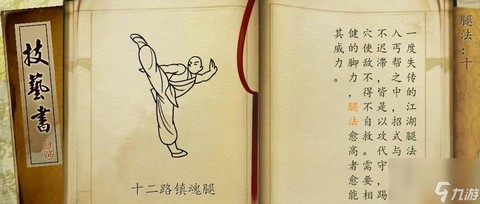 技藝書
十二路镇魂腿
腿法:十
一度失传的江湖腿法
入丐帮之中,招式与
不迟滞,皆是以攻代守,踢
穴使敌不得不自救。需要相
健的脚力,腿法愈高者愈能
其威力。
九游